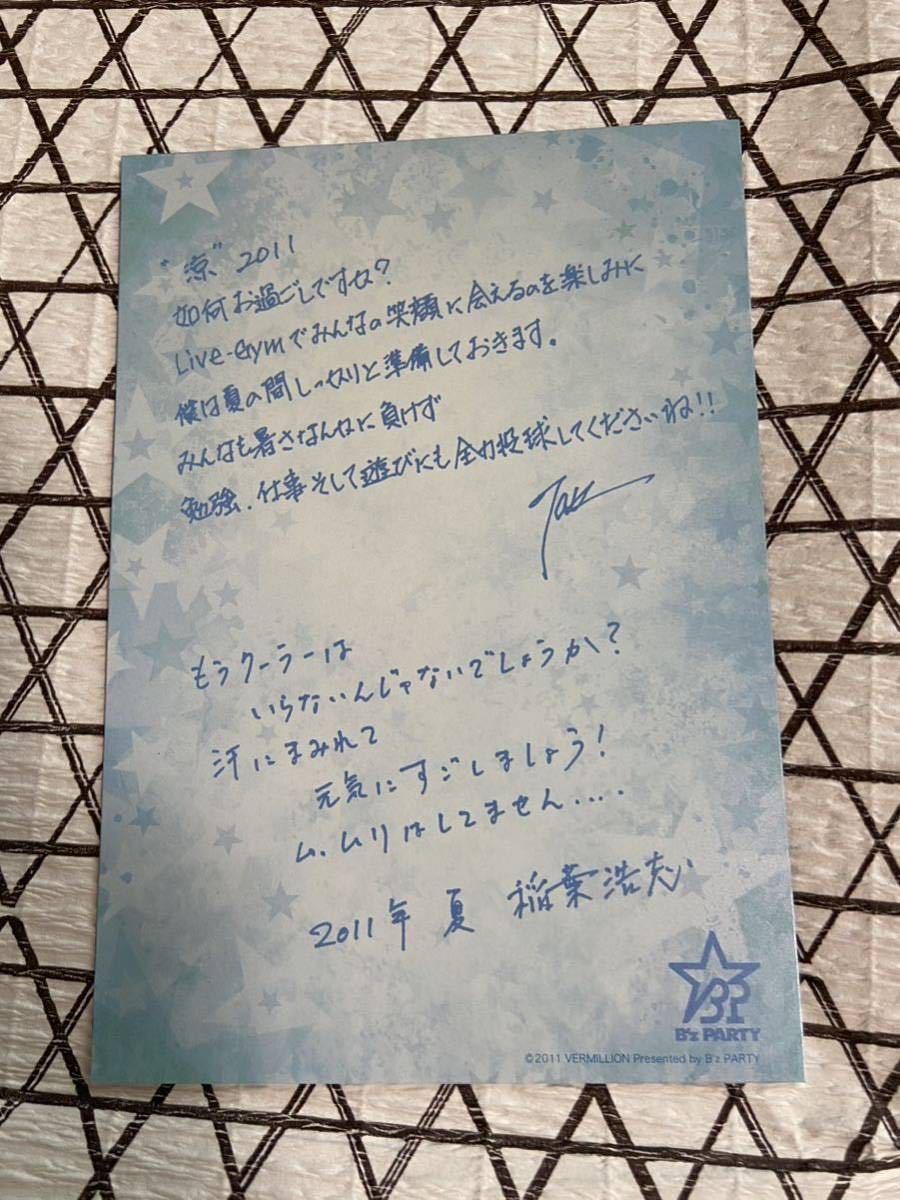 "涼" 2011
如何お過ごしですか?
Live-Gymでみんなの笑顔に会えるのを楽しみに
僕は夏の間しっかりと準備しておきます。
みんなも暑さなんかに負けず
勉強、仕事そして遊びにも全力投球してくださいね!!
Tak
もうクーラーは
いらないんじゃないでしょうか?
汗にまみれて
元気にすごしましょう!
ム、ムリはしてません....
2011年 夏 稲葉浩志
BP
B'z PARTY
©2011 VERMILLION Presented by B'z PARTY